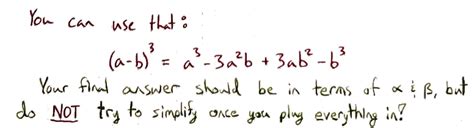 You can use that:
(a-b)³ = a³-3a²b + 3ab² - b³
Your final answer should be in terms of α & β, but
do NOT try to simplify once you plug everything in!